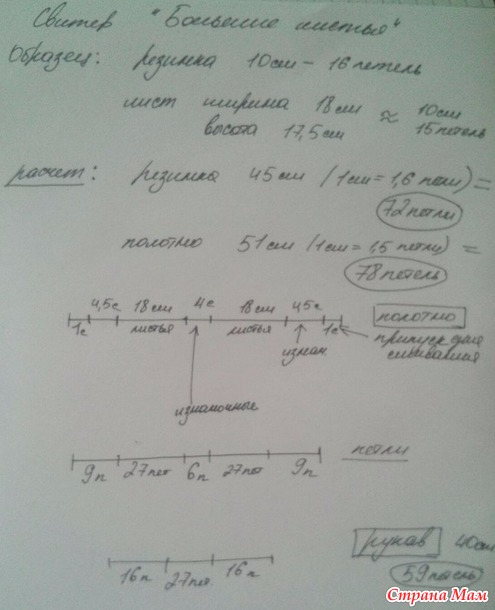 Свитер "Большие листья"
Образец: резинка 10см - 16 петель
лист ширина 18см ≈ 10см
высота 17,5см 15 петель
расчет: резинка 45см (1см = 1,6 петли) =
72 петли
полотно 51см (1см = 1,5 петли) =
78 петель
1с 4,5с 18см 4с 18см 4,5с 1с полотно
листья листья припуск для
сшивания
изнан
изнаночные
9п 27пет 6п 27пет 9п петли
рукав 40см
16п 27пет. 16п 59 петель
Страна Мам